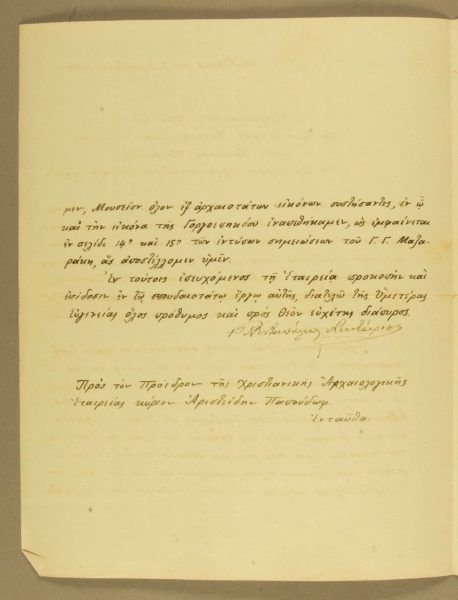 μεν, Μουσεῖον ὅλον ἐξ ἀρχαιοτάτων εἰκόνων συστήσαντες, ἐν ᾧ
καὶ τὴν εἰκόνα τῆς Γοργοεπηκόου ἐναπεθήκαμεν, ὡς ἐμφαίνεται
ἐν σελίδι 14ῃ καὶ 15ῃ τῶν ἐντύπων σημειώσεων τοῦ Γ. Γ. Μαζα-
ράκη, ἃς ἀποστέλλομεν ὑμῖν.
Ἐν τούτοις ἐπευχόμενος τῇ Ἑταιρείᾳ προκοπὴν καὶ
ἐπίδοσιν ἐν τῷ σπουδαιοτάτῳ ἔργῳ αὐτῆς, διατελῶ τῆς Ὑμετέρας
Εὐγενείας ὅλος πρόθυμος καὶ πρὸς Θεὸν εὐχέτης διάπυρος.
Νεκτάριος
Πρὸς τὸν Πρόεδρον τῆς Χριστιανικῆς Ἀρχαιολογικῆς
Ἑταιρείας κύριον Ἀριστείδην Παπούδωφ.
Ἐνταῦθα.